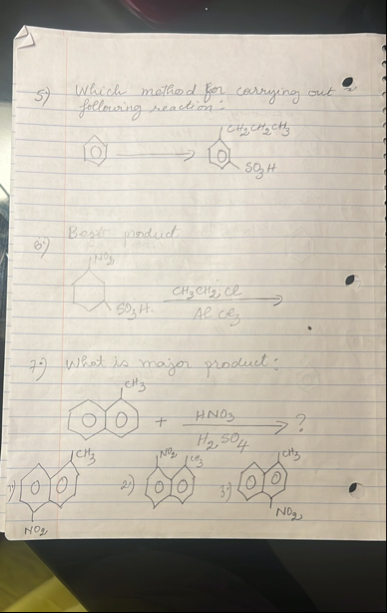 5) Which method for carrying out
following reaction:
CH2CH2CH3
SO3H
6) Best product
NO2
SO3H
CH3CH2,Cl
AlCl3
7) What is major product:
CH3
+ HNO3 ?
H2SO4
1) CH3 2) NO2 CH3 3) CH3
NO2 NO2